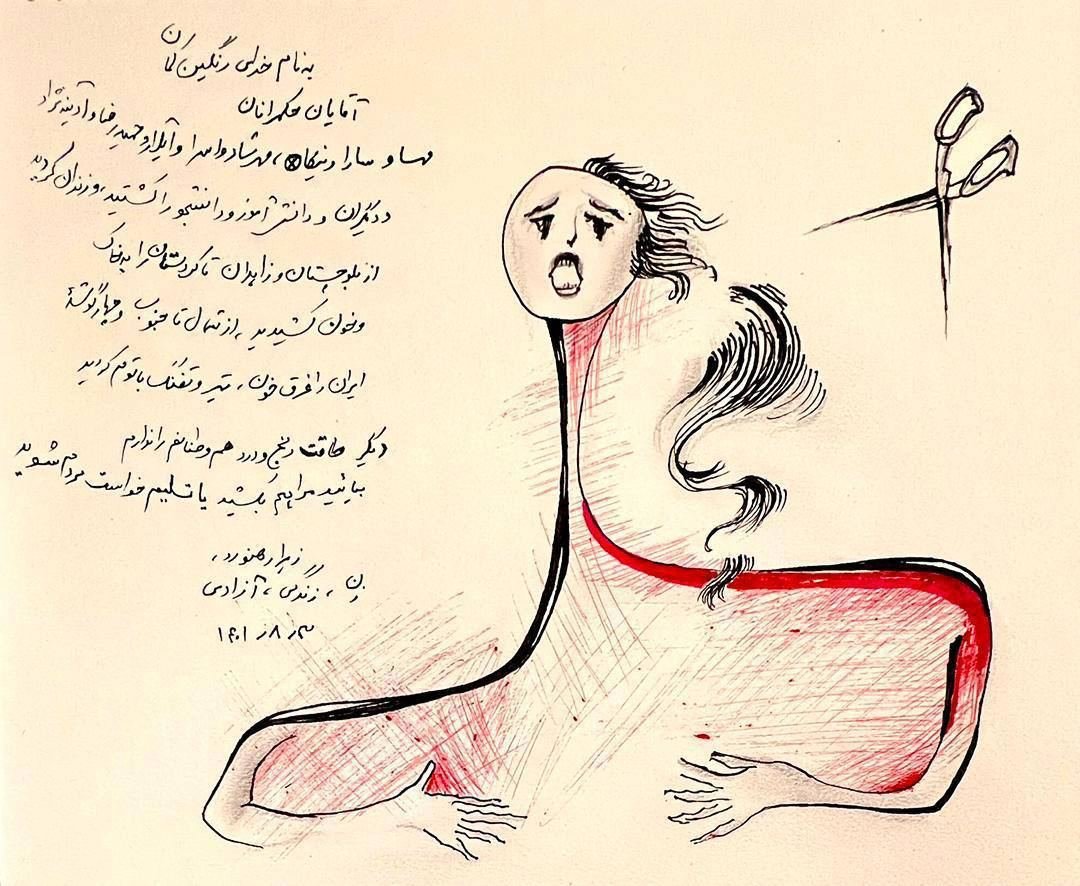 به نام خدای رنگین کمان
آقایان حکمرانان
مهسا و سارا و نیکا، مهرشاد و اسرا و آیلار و حمیدرضا و آدینه‌زاد
و دیگران و دانش آموز و دانشجو را کشتید، و زندان کردید
از بلوچستان و زاهدان تا کردستان را به خاک
و خون کشیدید، از شمال تا جنوب و چهار گوشهٔ
ایران را غرق خون، تیر و تفنگ باتوم کردید
دیگر طاقت رنج و درد هم وطنانم را ندارم
بیائید مرا هم بکشید یا تسلیم خواست مردم شوید
زهرا رهنورد،
زن، زندگی، آزادی
۱۴۰۱